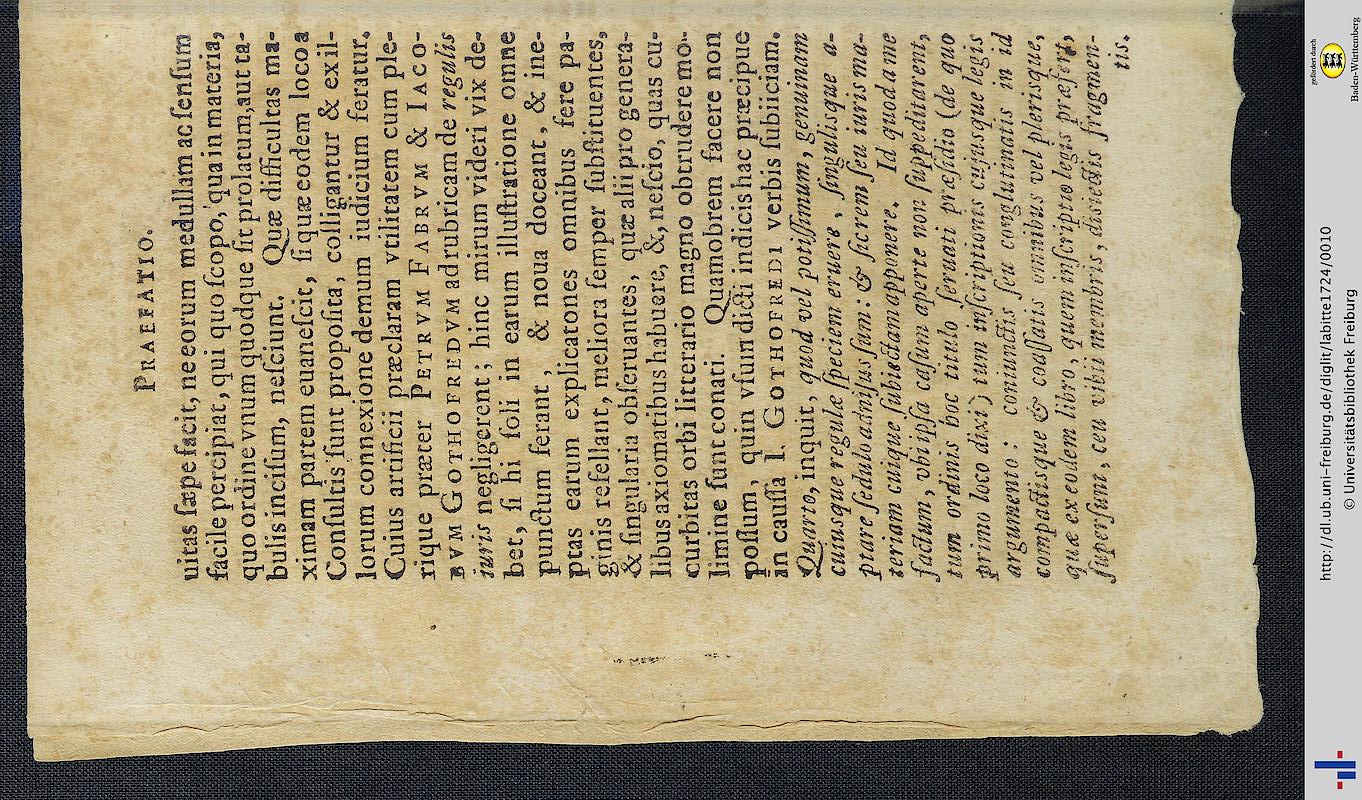 PRAEFATIO.
uitas ſæpe facit, ne eorum medullam ac ſenſum
facile percipiat, qui quo ſcopo, qua in materia,
quo ordine vnum quodque ſit prolatum, aut ta-
bulis inciſum, neſciunt. Quæ difficultas ma-
ximam partem euaneſcit, ſi quæ eodem loco a
Conſultis ſunt propoſita, colligantur & exil-
lorum connexione demum iudicium feratur.
Cuius artificii præclaram vtilitatem cum ple-
rique præter PETRVM FABRVM & IACO-
BVM GOTHOFREDVM ad rubricam de regulis
iuris negligerent; hinc mirum videri vix de-
bet, ſi hi ſoli in earum illuſtratione omne
punctum ferant, & noua doceant, & ine-
ptas earum explicatones omnibus fere pa-
ginis refellant, meliora ſemper ſubſtituentes,
& ſingularia obſeruantes, quæ alii pro genera-
libus axiomatibus habuere, &, neſcio, quas cu-
curbitras orbi litterario magno obtrudere mo-
limine ſunt conati. Quamobrem facere non
poſſum, quin vſum dicti indicis hac præcipue
in cauſſa I. GOTHOFREDI verbis ſubiiciam.
Quarto, inquit, quod vel potiſſimum, genuinam
cuiusque regulæ ſpeciem eruere, ſingulisque a-
ptare ſedulo adniſus ſum: & ſic rem ſeu iuris ma-
teriam cuique ſubiectam apponere. Id quod a me
factum, vbi ipſa caſum aperte non ſuppeditarent,
tum ordinis hoc titulo ſeruati præſidio (de quo
primo loco dixi) tum inſcriptionis cujusque legis
argumento: coniunctis ſeu conglutinatis in id
compactisque & coaſſatis omnibus vel plerisque,
quæ ex eodem libro, quem inſcriptio legis præfert,
ſuperſunt, ceu vbii membris, disiectis fragmen-
tis.
http://dl.ub.uni-freiburg.de/diglit/labitte1724/0010
© Universitätsbibliothek Freiburg
gefördert durch
Baden-Württemberg